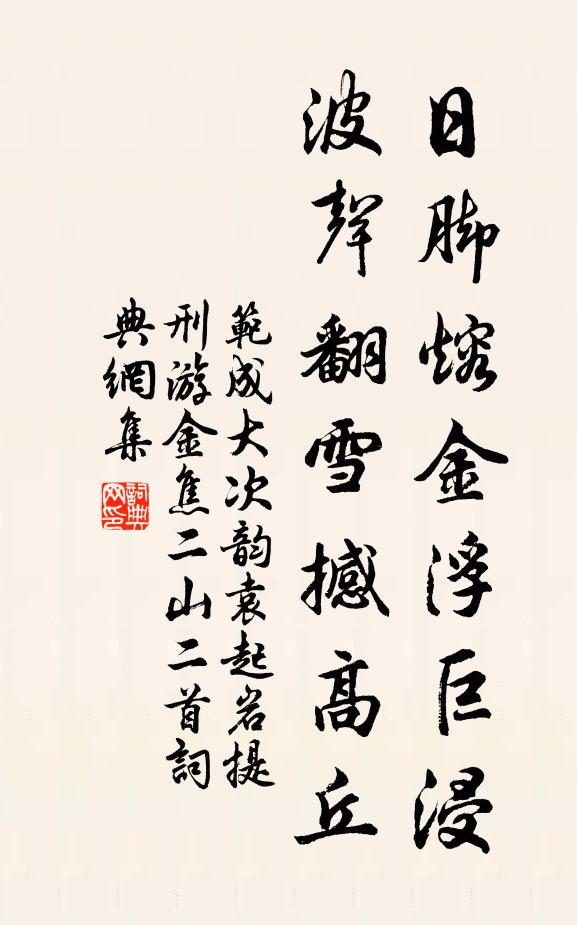 日脚熔金浮巨浸
波聲翻雪撼高丘
範成大次韵袁起岩提
刑游金焦二山二首詞
典網集
詞典网印